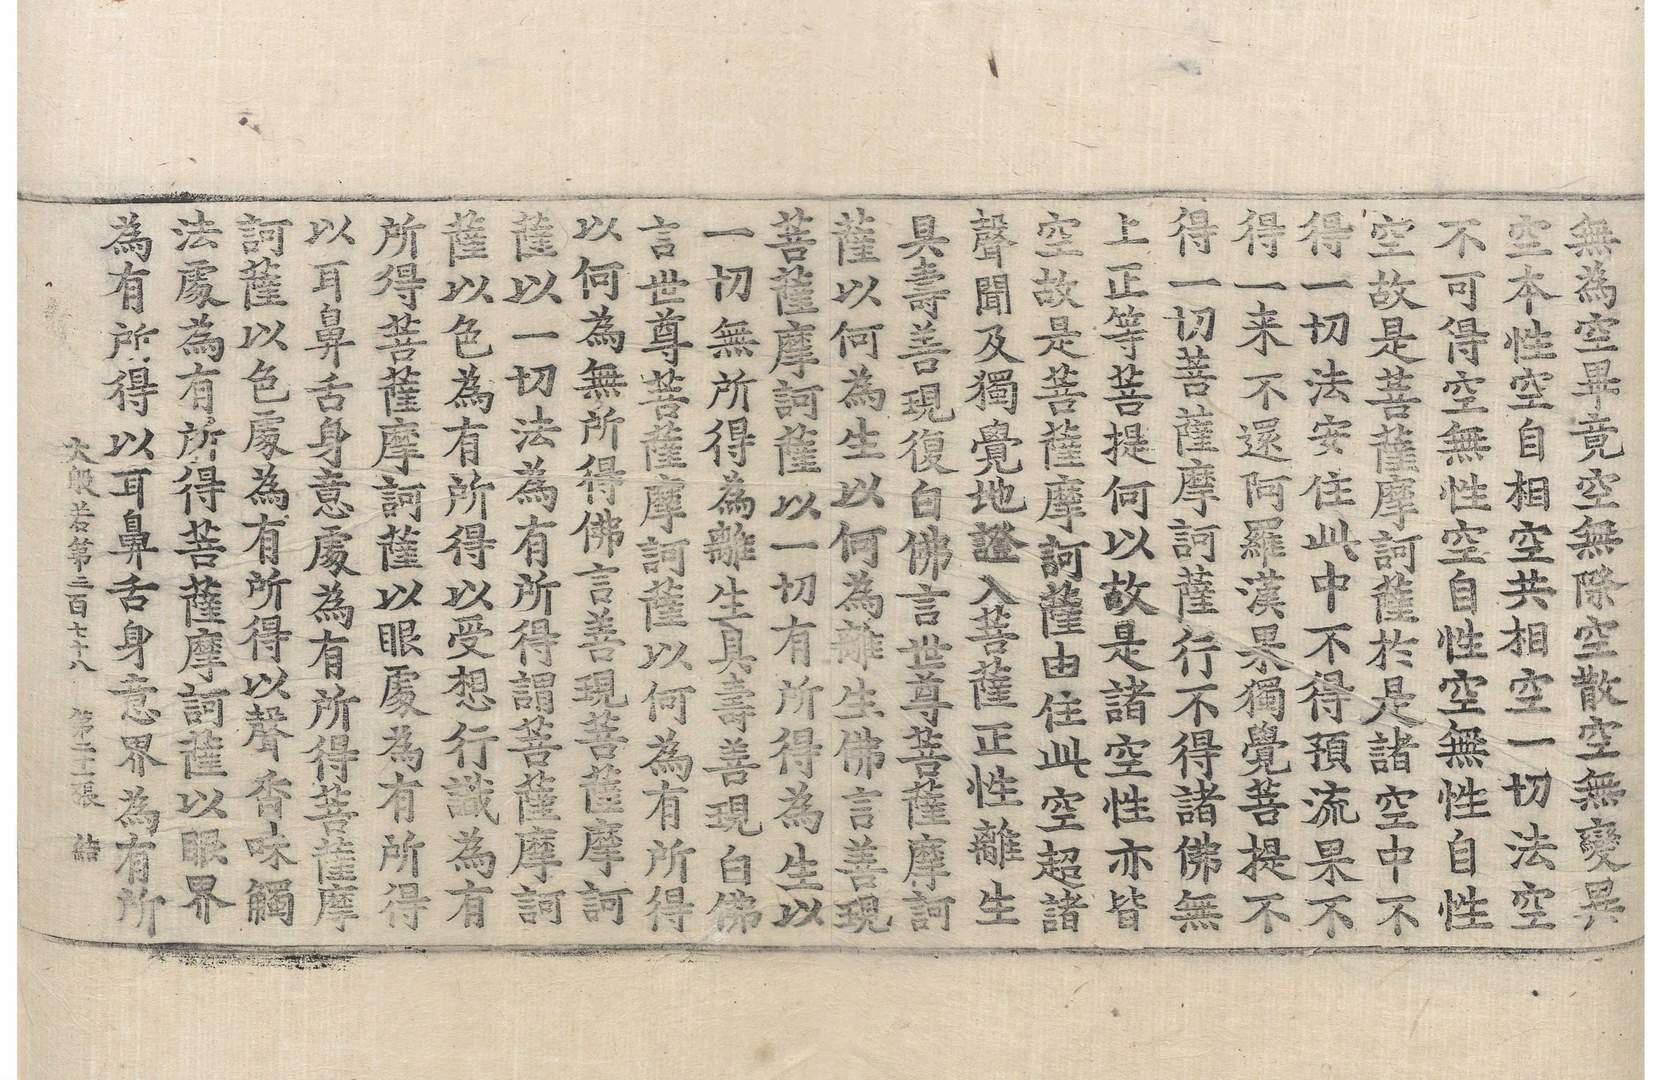 無為空畢竟空無際空散空無變異
空本性空自相空共相空一切法空
不可得空無性空自性空無性自性
空故是菩薩摩訶薩於是諸空中不
得一切法安住此中不得預流果不
得一来不還阿羅漢果獨覺菩提不
得一切菩薩摩訶薩行不得諸佛無
上正等菩提何以故是諸空性亦皆
空故是菩薩摩訶薩由住此空超諸
聲聞及獨覺地證入菩薩正性離生
具壽善現復白佛言世尊菩薩摩訶
薩以何為生以何為離生佛言善現
菩薩摩訶薩以一切有所得為生以
一切無所得為離生具壽善現白佛
言世尊菩薩摩訶薩以何為有所得
以何為無所得佛言善現菩薩摩訶
薩以一切法為有所得謂菩薩摩訶
薩以色為有所得以受想行識為有
所得菩薩摩訶薩以眼處為有所得
以耳鼻舌身意處為有所得菩薩摩
訶薩以色處為有所得以聲香味觸
法處為有所得菩薩摩訶薩以眼界
為有所得以耳鼻舌身意界為有所
大般若第三百七十八　第二十二張　結